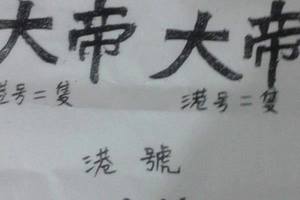 大帝 大帝
港号二隻 港号二隻
港號